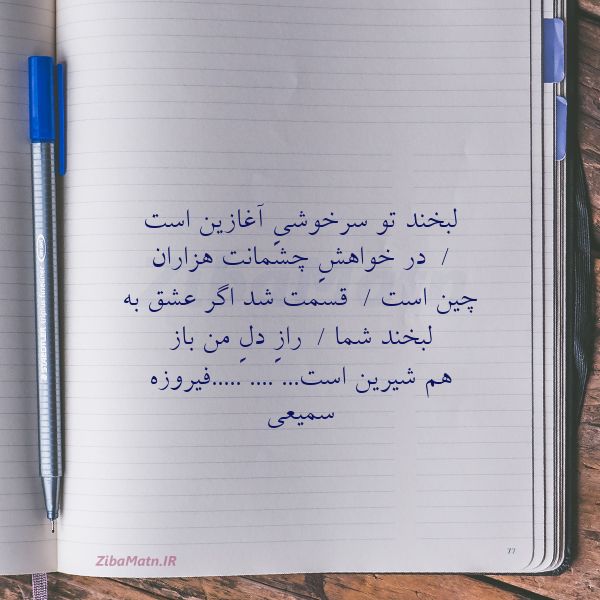 لبخند تو سرخوشیِ آغازین است
/ در خواهشِ چشمانت هزاران
چین است / قسمت شد اگر عشق به
لبخند شما / رازِ دلِ من باز
هم شیرین است... .... .....فیروزه
سمیعی
77
ZibaMatn.IR